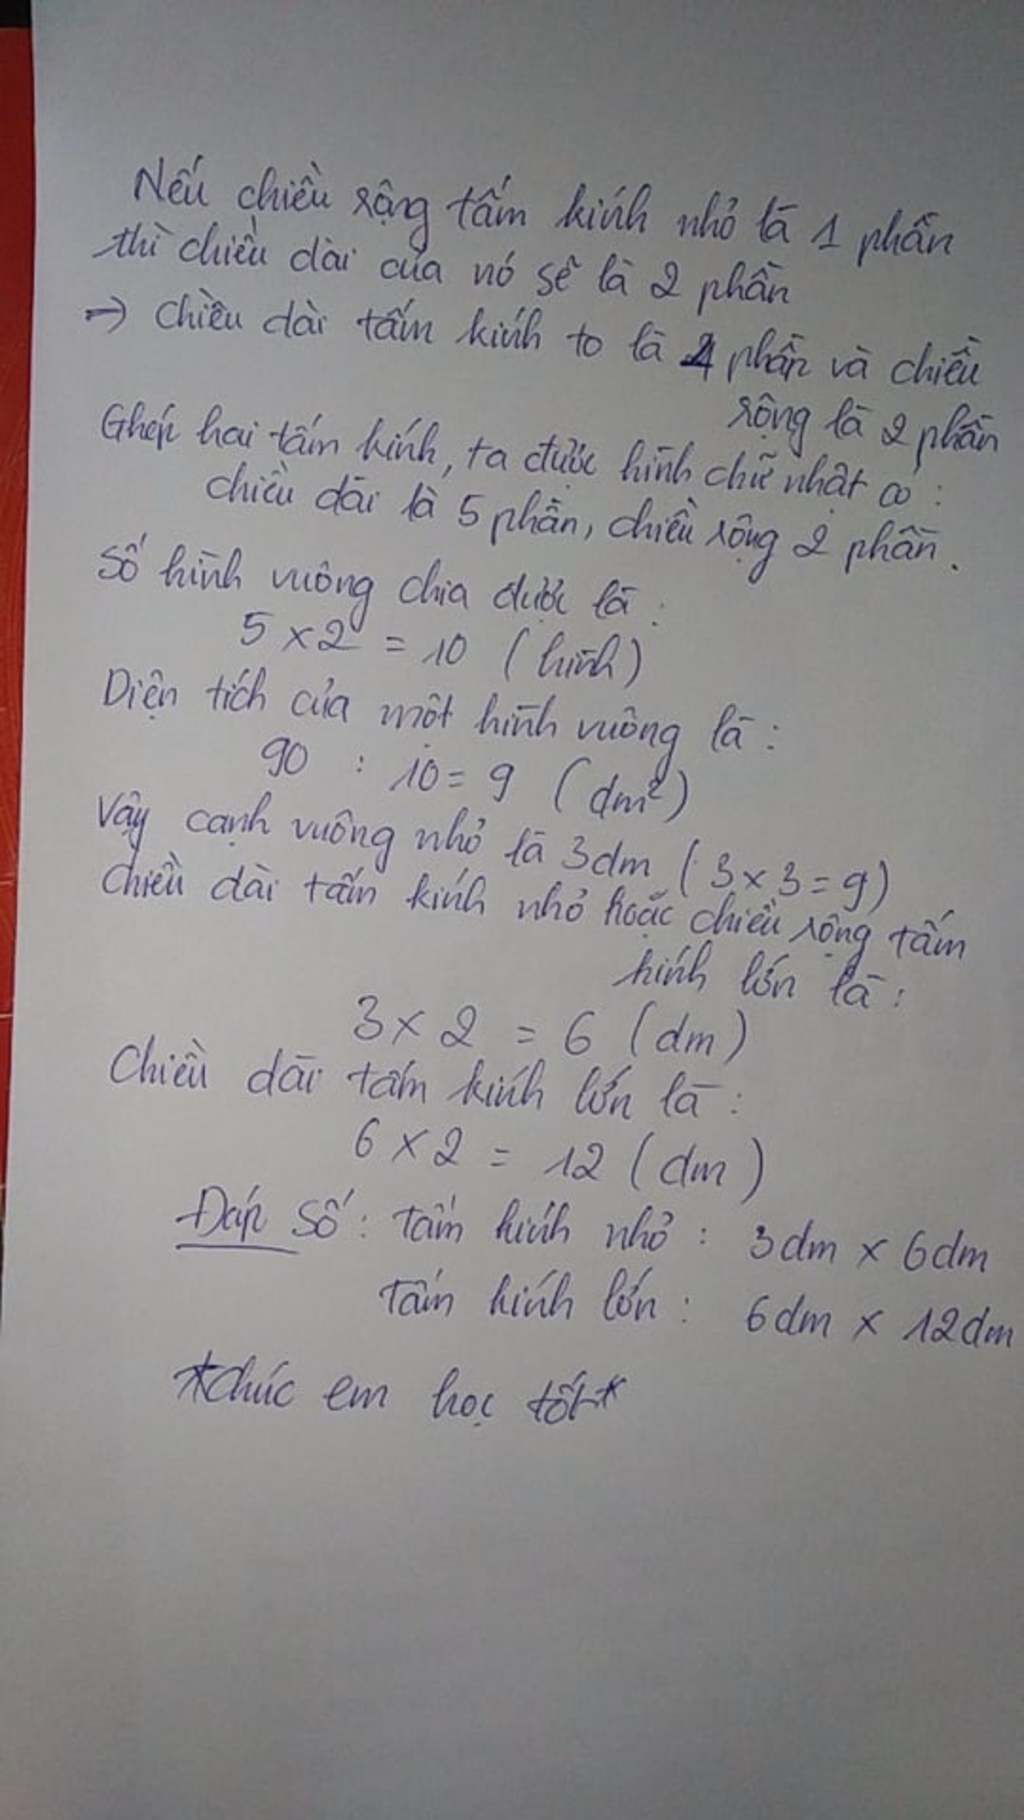 Nếu chiều rộng tấm kính nhỏ là 1 phần
thì chiều dài của nó sẽ là 2 phần
→ Chiều dài tấm kính to là 4 phần và chiều
rộng là 2 phần
Ghép hai tấm kính, ta được hình chữ nhật có :
chiều dài là 5 phần, chiều rộng 2 phần.
Số hình vuông chia được là :
5 x 2 = 10 (hình)
Diện tích của một hình vuông là :
90 : 10 = 9 (dm²)
Vậy cạnh vuông nhỏ là 3dm (3 x 3 = 9)
Chiều dài tấm kính nhỏ hoặc chiều rộng tấm
kính lớn là :
3 x 2 = 6 (dm)
Chiều dài tấm kính lớn là :
6 x 2 = 12 (dm)
Đáp số : tấm kính nhỏ : 3dm x 6dm
tấm kính lớn : 6dm x 12dm
*chúc em học tốt*